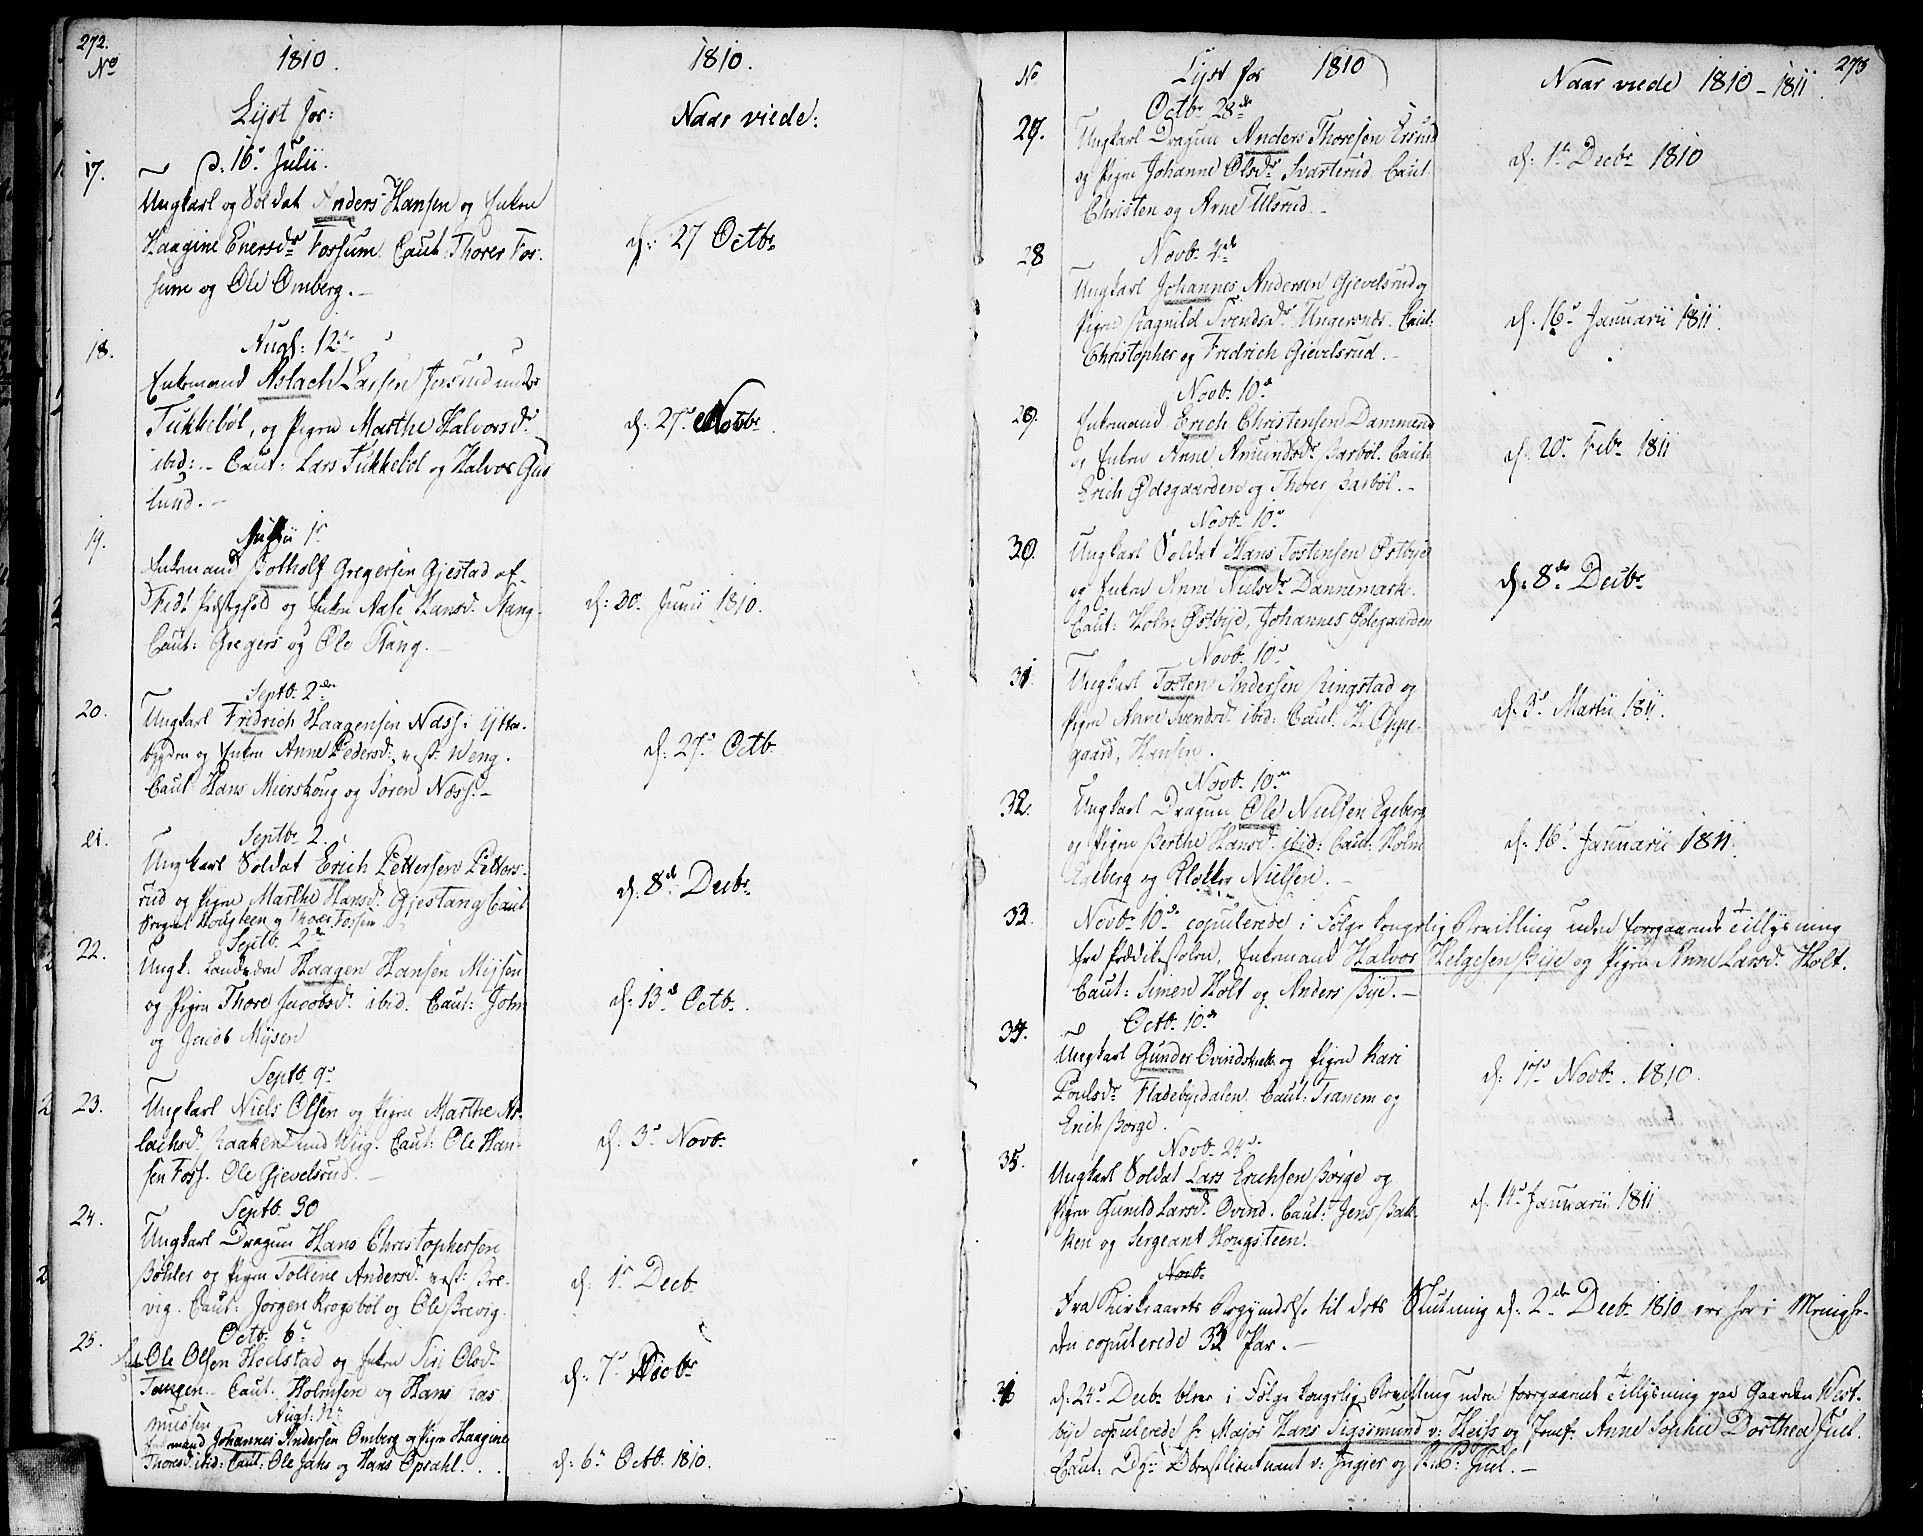 272.
No
1810.
1810.
Lyst for:
Naar viede:
17.
d: 16 Julii.
Ungkarl og Soldat Anders Hansen og Enken
Haagine Enersdr Fossum. Caut: Thorer Fos-
sum og Ole Omberg.
d: 27 Octbr
18.
Augs: 12
Enkemand Aslach Larsen Jensrud under
Tukkebøl, og Pigen Marthe Halvorsdr
ibid: Caut: Lars Tukkebøl og Halvor Gus
lund.
d. 27 Novbr
19.
1
Enkemand Botholf Gregersen Gjestad af
Fedt Præstegield og Enken Aase Hansd. Stang.
Caut: Gregers og Ole Stang.
d: 30 Junii 1810.
20.
Septb. 2den
Ungkarl Fridrich Haagensen Næss i Ytter
bygden og Enken Anne Pedersd. Weng.
Caut Hans Mierskoug og Søren Næss.
d. 27 Octb.
21.
Septbr 2
Ungkarl Soldat Erich Pettersen Petters-
rud og Pigen Marthe Hansd. Gjestang Caut
Sergeant Hougsteen og Thorer Fossum
d. 8de Decbr
22.
Septb. 2
Ungk. Haagen Hansen Mysen
og Pigen Thore Jacobsd. ibid. Caut: John
og Jacob Mysen
d: 13 Octb.
23.
Septb. 9
Ungkarl Niels Olsen og Pigen Marthe As-
lachsd. Raaken und Wiig. Caut: Ole Han-
sen Foss. Ole Gjevelsrud.
d: 3 Novb.
24.
Septb. 30
Ungkarl Dragun Hans Christophersen
Bøhler og Pigen Tolline Andersd. Bre-
vig. Caut: Jørgen Krogsbøl og Ole Brevig.
d: 1 Decb.
25.
Octb. 6
Ole Olsen Hoelstad og Enken Siri Olsd.
Tangen. Caut. Holmsen og Hans Ras
mussen
d. 7
Augs:
Enkemand Johannes Andersen Omberg og Pigen Haagine
Thoresd. ibid: Caut: Ole Jahr og Hans Opsahl.
d. 6 Octb. 1810.
No
Lyst for 1810
Naar viede 1810-1811.
273
27.
Octbr 28de
Ungkarl Dragun Anders Thoresen Ersrud
og Pigen Johanne Olsdr Svarterud Caut.
Christen og Arne Ulsrud.
d: 1 Decbr 1810
28
Novb. 4de
Ungkarl Johannes Andersen Gjevelsrud og
Pigen Ragnild Svendsdr Ungersnes. Caut:
Christopher og Fredrich Gjevelsrud.
d. 16 Januarii 1811.
29.
Novb. 10
Enkemand Erich Christensen Dammerud
og Enken Anne Amundsdr Barbøl. Caut:
Erich Ødegaarden og Thorer Barbøl.
d. 20 Febr 1811
30.
Novb. 10
Ungkarl Soldat Hans Tostensen Østbye
og Enken Anne Nielsdr Dannemark.
Caut: Holm Østbye, Johannes Ødegaarden
d: 8de Decbr
31.
Novb. 10
Ungkarl Tosten Andersen Ringstad og
Pigen Anne Svendsdr ibid: Caut. H. Oppe-
gaard, Hansen.
d. 3 Martii 1811.
32.
Novb. 10
Ungkarl Dragun Ole Nielsen Egeberg
og Pigen Berthe Hansd. ibid: Caut: Holm
Egeberg og Klokker Nielsen.
d. 16 Januarii 1811.
33.
Novb. 10de copulerede i Følge kongelig Bevilling uden foregaaende Tillysning
fra Prædikestolen, Enkemand Halvor Helgesen Bye og Pigen Anne Larsd. Holt.
Caut: Simen Holt og Anders Bye.
34.
Octb. 10
Ungkarl Gunder Ovindsbakk og Pigen Kari
Poulsdr Fladebyedalen. Caut: Tranem og
Erich Børge.
d: 17 Novb. 1810.
35.
Novb. 24
Ungkarl Soldat Lars Erichsen Børge og
Pigen Gunild Larsd. Ovind. Caut: Jens Bak-
ken og Sergeant Hougsteen.
d. 14 Januarii 1811.
Novb.
Fra Kirkeaarets Begyndelse til dets Slutning d: 2den Decbr 1810 ere her i Menighe-
den copulerede 33 Par.
36
d: 24 Decbr blev i Følge kongelig Bevilling uden foregaaende Tillysning paa Gaarden West-
bye copulerede Hr Major Hans Sigismund v: Heiss og Jomfr. Anne Sophie Dorthea Juel.
Caut: Oberstlieutnant v: Ingier og Juel.